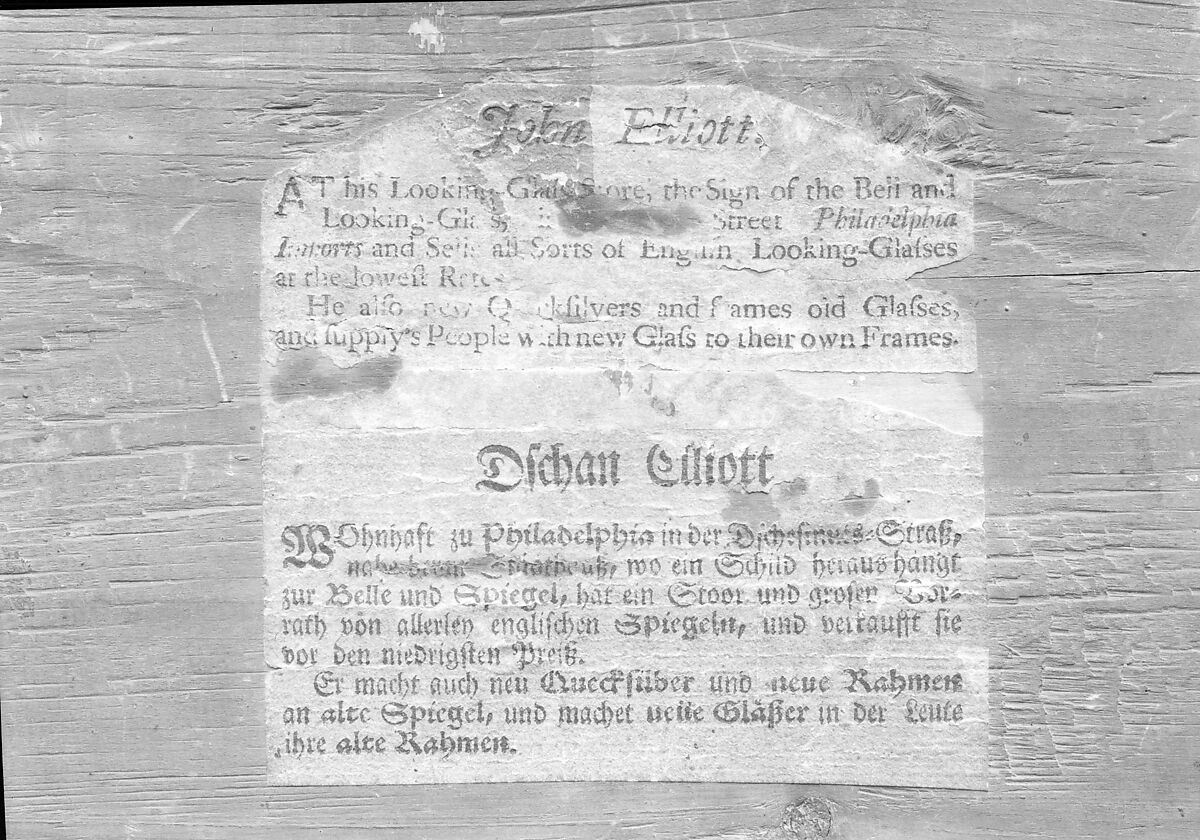 John Elliott.
AT his Looking-Glaſs Store, the Sign of the Bell and
Looking-Glaſs, Street Philadelphia
Imports and Sells all Sorts of Engliſh Looking-Glaſſes
at the loweſt Rates
He alſo new Quickſilvers and frames old Glaſſes,
and ſupply's People with new Glaſs to their own Frames.
Dſchan Elliott
WOhnhaft zu Philadelphia in der Straß,
wo ein Schild heraus hangt
zur Belle und Spiegel, hat ein Stoor und groſen Vor-
rath von allerley engliſchen Spiegeln, und verkaufft ſie
vor den niedrigſten Preiß.
Er macht auch neu Queckſilber und neue Rahmen
an alte Spiegel, und machet neue Gläßer in der Leute
ihre alte Rahmen.